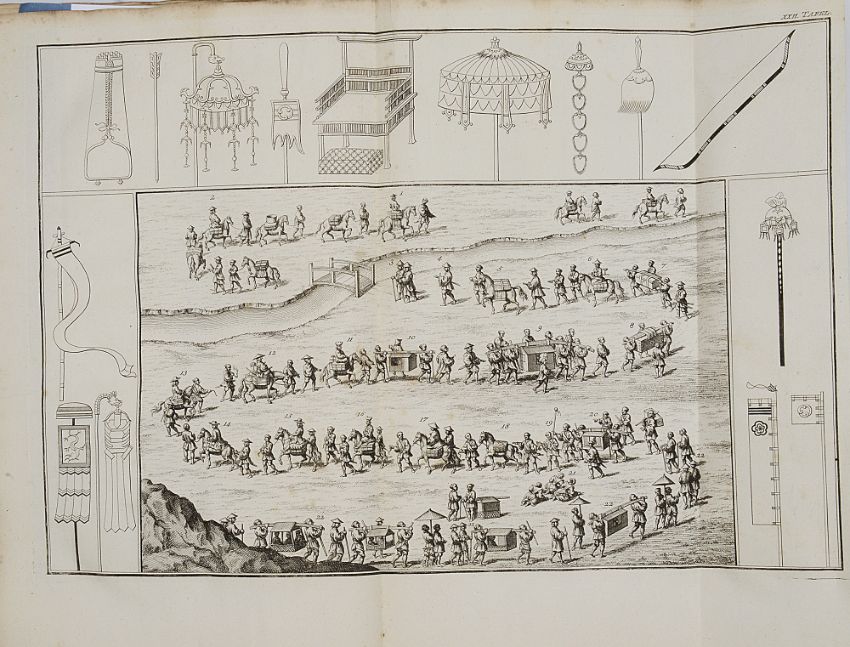 XXII. TAFEL.
2 1
3 4 5 6 7
13 12 11 10 9 8
14 15 16 17 18 19 20
21 22
23 22